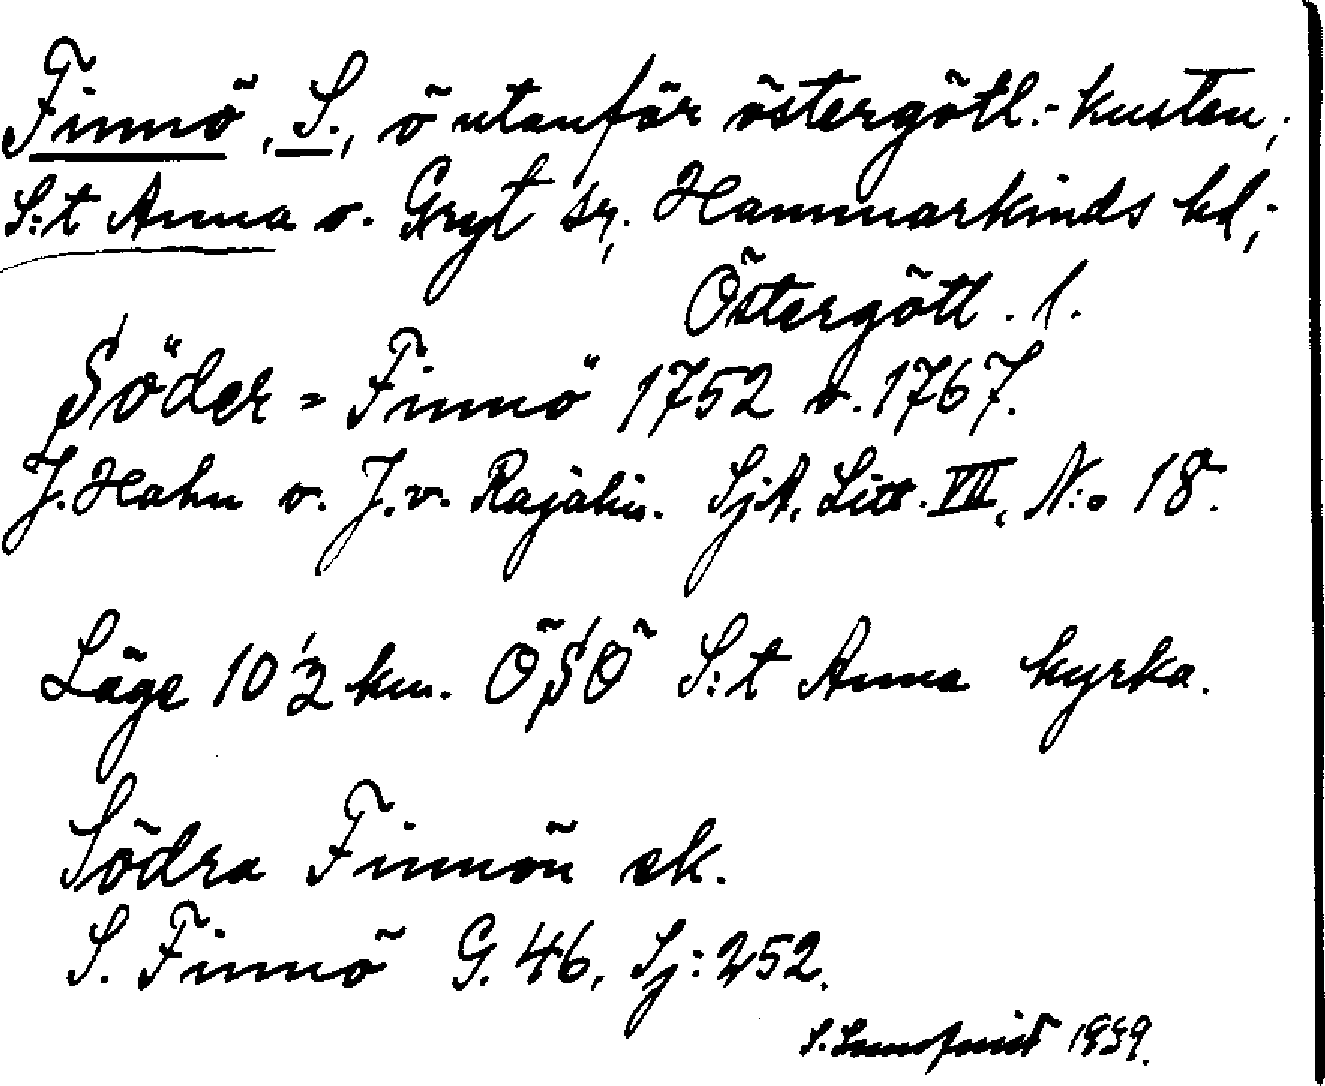 Finnö, S., ö utanför östergötl.-kusten,
S:t Anna o. Gryt sr, Hammarkinds hd,
Östergötl. l.
Söder=Finnö 1752 o. 1767.
J. Hahn o. J. v. Rajalin. SjA. Litt. VIII, N:o 18.
Läge 10 1/2 km. ÖSÖ S:t Anna kyrka.
Södra Finnön ek.
S. Finnö G. 46, Sj: 252.
S. 1939.